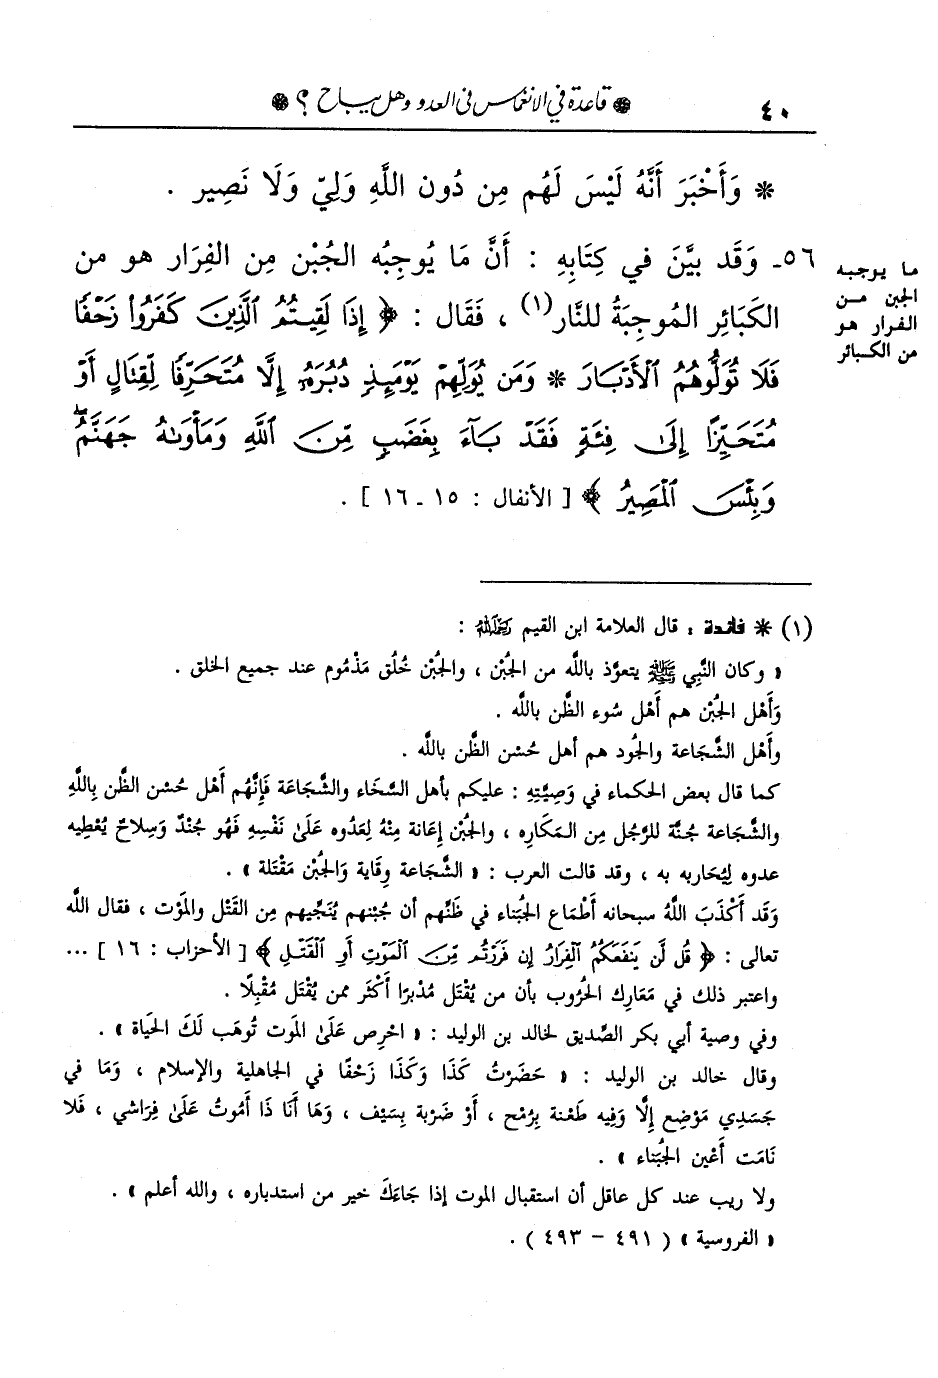 ٤٠
❁ قاعدة في الانغماس في العدو وهل يباح ؟ ❁
* وَأَخْبَرَ أَنَّهُ لَيْسَ لَهُم مِن دُون اللَّهِ وَلِيّ وَلَا نَصِير .
٥٦ـ وَقَد بيَّنَ في كِتَابِهِ : أَنَّ مَا يُوجِبُه الجُبْن مِن الفِرَار هو من
الكَبَائِر الموجِبَةُ للنَّار(١) ، فَقَال : ﴿ إِذَا لَقِيتُمُ ٱلَّذِينَ كَفَرُوا۟ زَحْفًا
فَلَا تُوَلُّوهُمُ ٱلْأَدْبَارَ * وَمَن يُوَلِّهِمْ يَوْمَئِذٍ دُبُرَهُۥٓ إِلَّا مُتَحَرِّفًا لِّقِتَالٍ أَوْ
مُتَحَيِّزًا إِلَىٰ فِئَةٍ فَقَدْ بَآءَ بِغَضَبٍ مِّنَ ٱللَّهِ وَمَأْوَىٰهُ جَهَنَّمُ ۖ
وَبِئْسَ ٱلْمَصِيرُ ﴾ [ الأنفال : ١٥ ـ ١٦ ] .
ما يوجبه
الجبن من
الفرار هو
من الكبائر
(١) * فائدة : قال العلامة ابن القيم رَحِمَهُ اللَّهُ :
« وكان النَّبِي ﷺ يتعوَّذ باللَّه من الجُبْن ، والجُبْن خُلُق مَذْمُوم عند جميع الخلق .
وَأَهْل الجُبْن هم أَهْل سُوء الظَّن باللَّه .
وأَهْل الشَّجَاعة والجُود هم أهل حُسْن الظَّن باللَّه .
كما قال بعض الحكماء في وَصِيَّتِهِ : عليكم بأهل السَّخَاء والشَّجَاعَة فَإِنَّهُم أَهْل حُسْن الظَّن بِاللَّهِ
والشَّجَاعة جُنَّة للرَّجُل مِن المَكَاره ، والجُبْن إِعَانة مِنْهُ لِعَدُوه عَلَىٰ نَفْسِهِ فَهُو جُنْدٌ وَسِلاحٌ يُعْطِيه
عدوه لِيُحَاربه به ، وقد قالت العرب : « الشَّجَاعة وِقَاية وَالجُبْن مَقْتَلة » .
وَقَد أَكْذَبَ اللَّهُ سبحانه أَطْمَاع الجُبَناء في ظَنِّهم أن جُبْنهم يُنَجِّيهم مِن القَتْل والمَوْت ، فقال اللَّه
تعالى : ﴿ قُل لَّن يَنفَعَكُمُ ٱلْفِرَارُ إِن فَرَرْتُم مِّنَ ٱلْمَوْتِ أَوِ ٱلْقَتْلِ ﴾ [ الأحزاب : ١٦ ] ...
واعتبر ذلك في مَعَارِك الحُرُوب بأن من يُقْتَل مُدْبرًا أَكْثَر ممن يُقْتَل مُقْبِلًا .
وفي وصية أبي بكر الصِّديق لخالد بن الوليد : « احْرِص عَلَىٰ الموت تُوهَب لَكَ الحَيَاة » .
وقال خالد بن الوليد : « حَضَرْتُ كَذَا وَكَذَا زَحْفًا في الجاهلية والإسلام ، وَمَا في
جَسَدِي مَوْضِع إلَّا وَفِيه طَعْنة بِرُمْح ، أَوْ ضَرْبة بِسَيْف ، وَهَا أَنَا ذَا أَمُوتُ عَلَىٰ فِرَاشي ، فَلا
نَامَت أَعْين الجُبَناء » .
ولا ريب عند كل عاقل أن استقبال الموت إذا جَاءَكَ خير من استدباره ، والله أعلم » .
« الفروسية » ( ٤٩١ – ٤٩٣ ) .